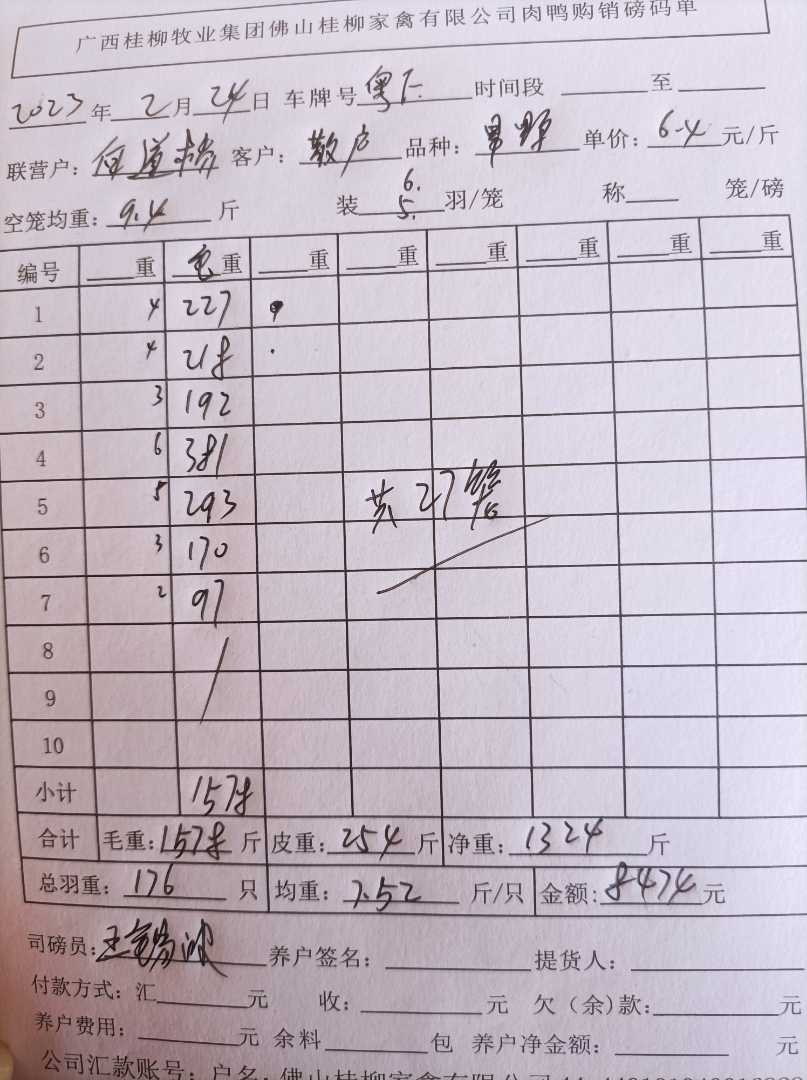 广西桂柳牧业集团佛山桂柳家禽有限公司肉鸭购销磅码单
2023年 2月 24日 车牌号 粤 时间段 至
联营户: 客户: 散户 品种: 单价: 6.4 元/斤
空笼均重: 9.4 斤 装 6. 5. 羽/笼 称 笼/磅
编号 重 毛重 重 重 重 重 重 重
1 4 227
2 4 218
3 3 192
4 6 381
5 5 293 共27笼
6 3 170
7 2 97
8
9
10
小计 1578
合计 毛重: 1578 斤 皮重: 254 斤 净重: 1324 斤
总羽重: 176 只 均重: 7.52 斤/只 金额: 8474 元
司磅员: 王 养户签名: 提货人:
付款方式: 汇 元 收: 元 欠（余)款: 元
养户费用: 元 余料 包 养户净金额: 元
公司汇款账号: 户名: 佛山桂柳家禽有限公司